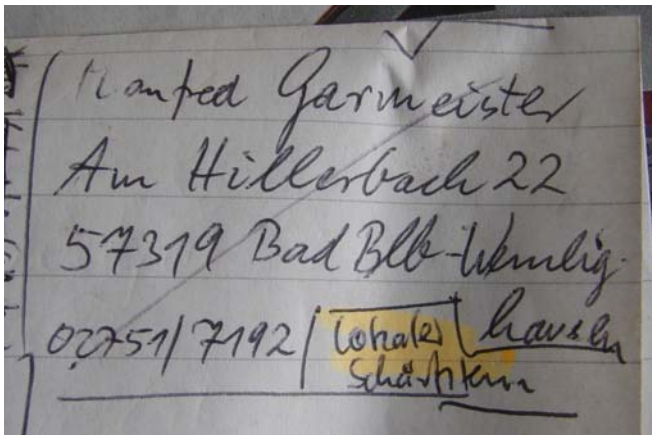 Manfred Garmeister
Am Hillerbach 22
57319 Bad Blb-Wemlig-
02751/7192 / Lokaler hausen